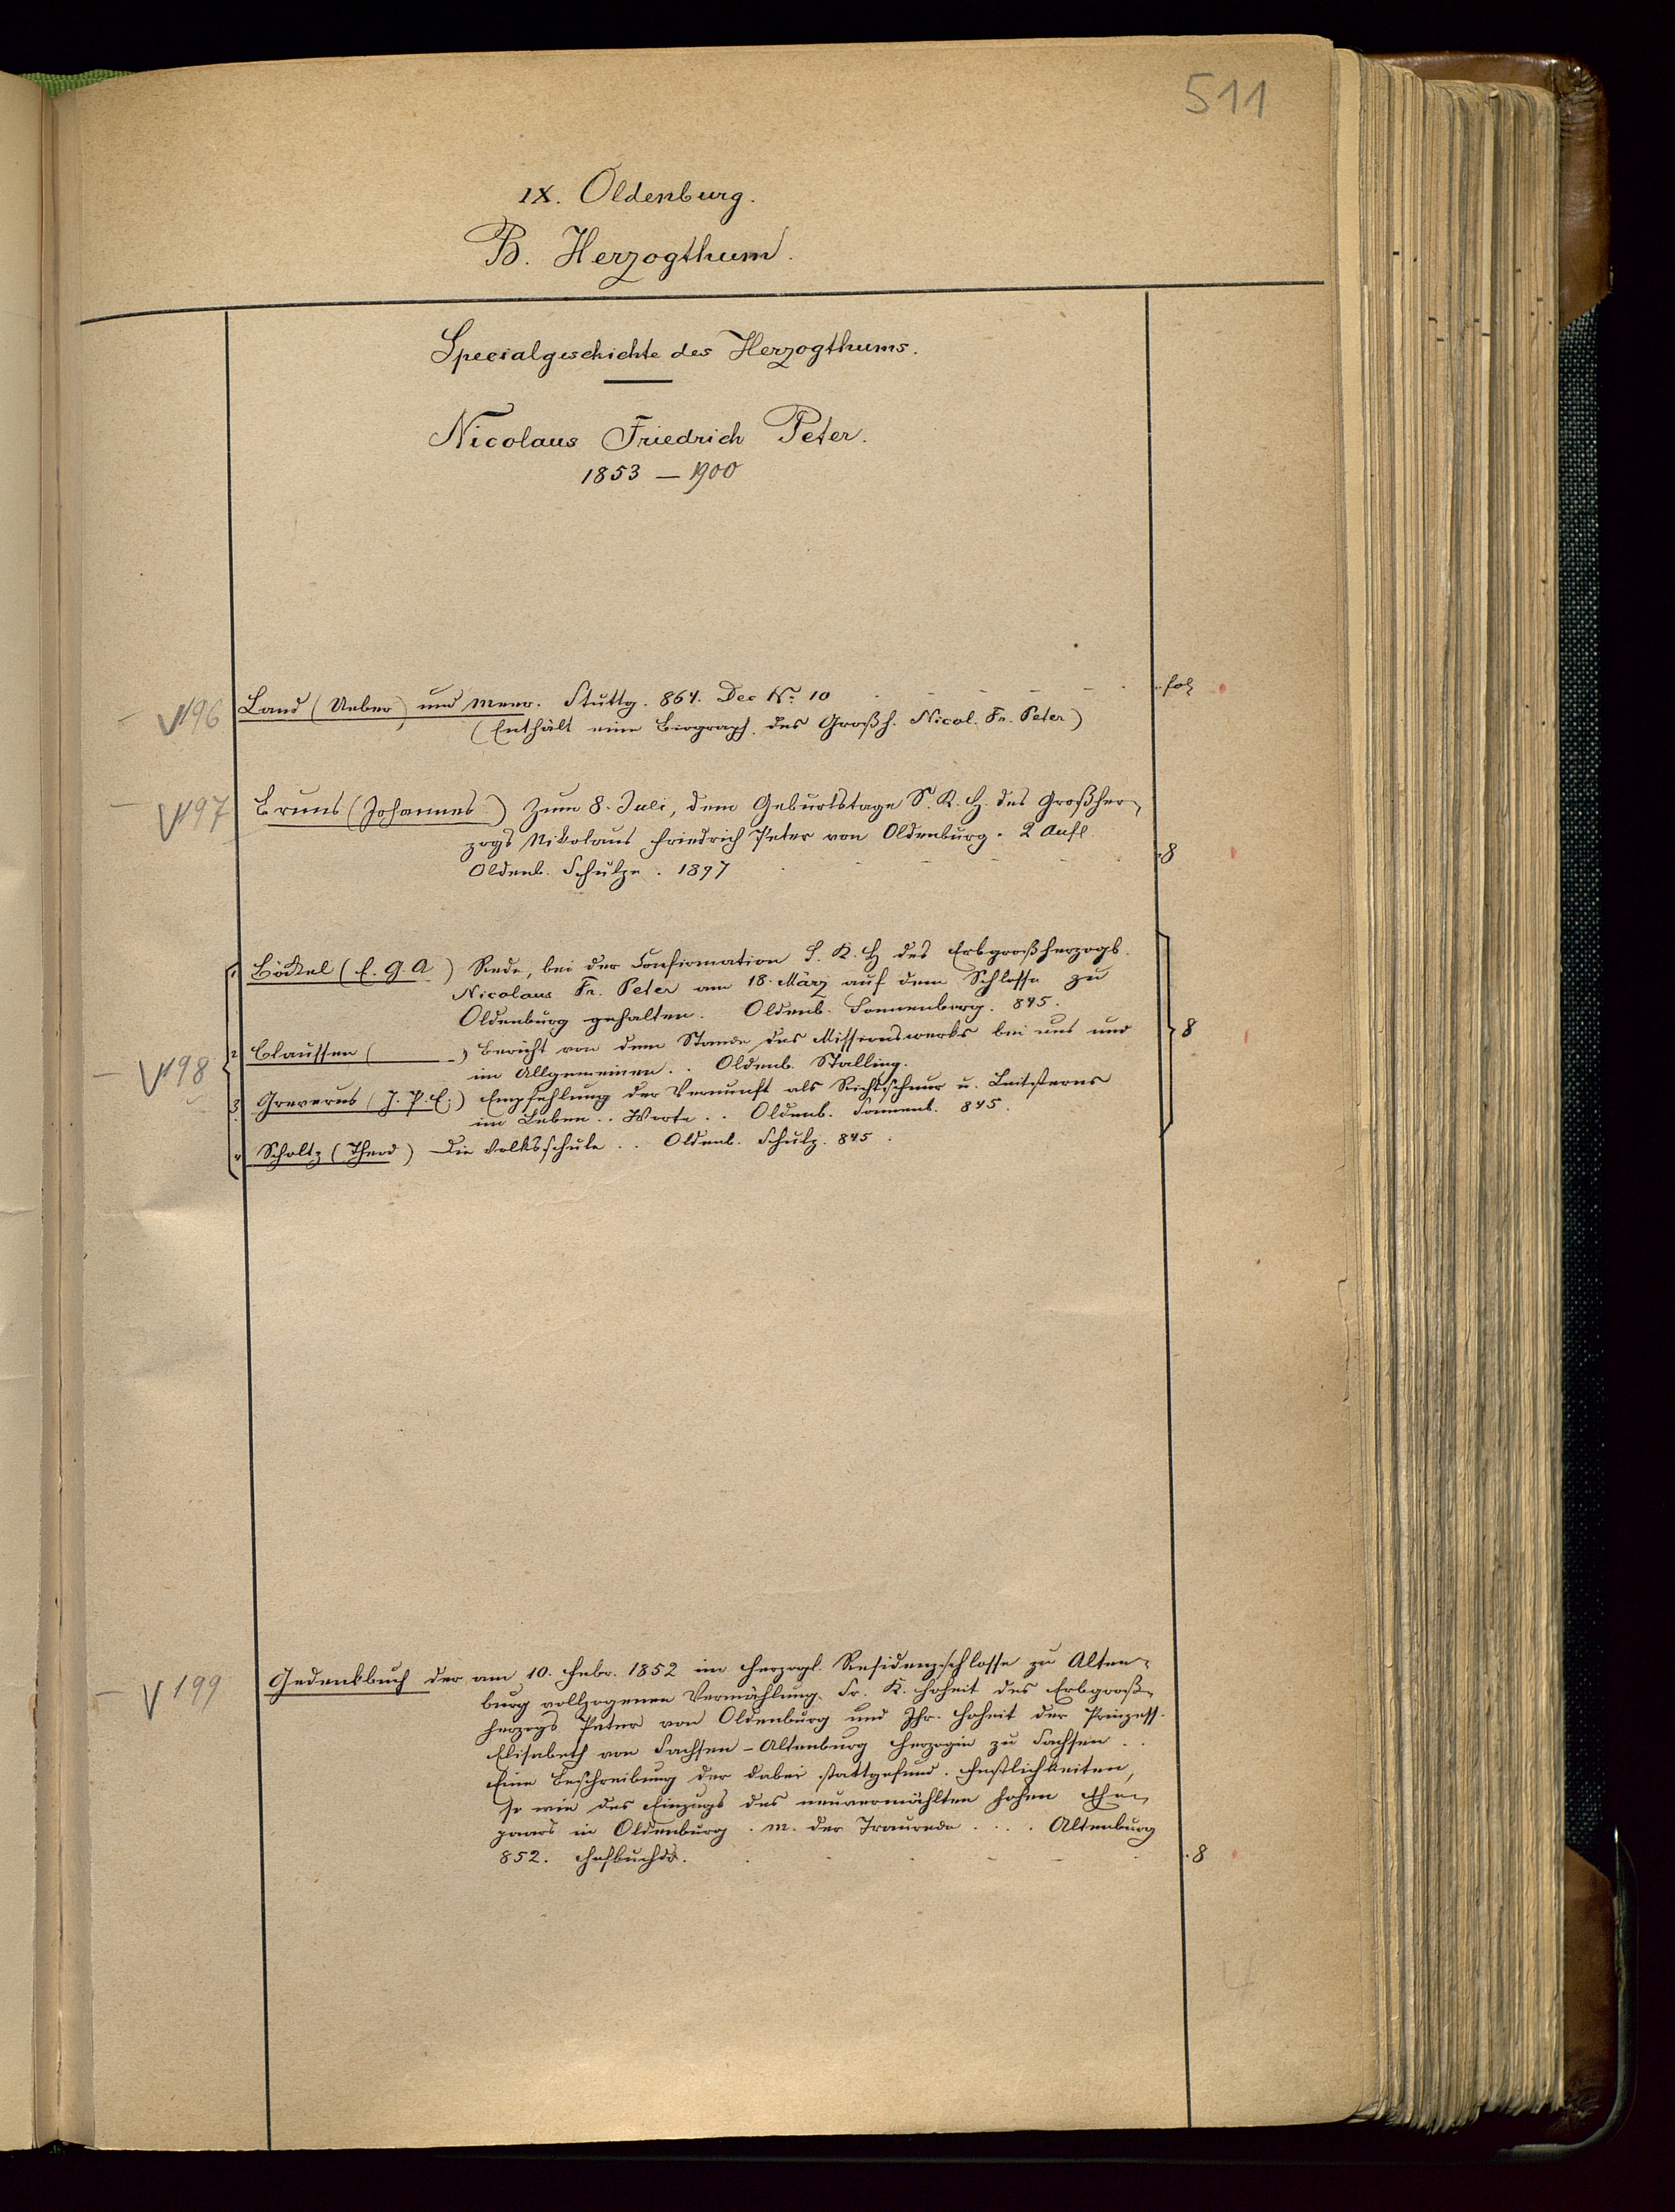 511
IX. Oldenburg.
B. Herzogthum.
Specialgeschichte des Herzogthums.
Nicolaus Friedrich Peter.
1853 – 1900
196 Land (Ueber) und Meer. Stuttg. 864. Dec No. 10 fol
(Enthält eine Biograph. des Großh. Nicol. Fr. Peter)
197 Bruns (Johannes) Zum 8. Juli, dem Geburtstage S. K. H. des Großher-
zogs Nikolaus Friedrich Peter von Oldenburg. 2 Aufl.
Oldenb. Schulze. 1897 8
198
1 Böckel (E. G. A) Rede, bei der Confirmation S. K. H des Erbgroßherzogs
Nicolaus Fr. Peter am 18. März auf dem Schlosse zu
Oldenburg gehalten. Oldenb. Sonnenberg. 845.
2 Claussen ( ) Bericht von dem Stande des Missionswerks bei uns und 8
im Allgemeinen.. Oldenb. Stalling.
3 Greverus (J. P. E.) Empfehlung der Vernunft als Richtschnur u. Leitsterns
im Leben.. Worte.. Oldenb. Sonnenb. 845.
4 Scholtz (Theod) Die Volksschule.. Oldenb. Schulz. 845.
199 Gedenkbuch der am 10. Febr. 1852 im Herzogl. Residenzschlosse zu Alten-
burg vollzogenen Vermählung Sr. K. Hoheit des Erbgroß-
herzogs Peter von Oldenburg und Ihr. Hoheit der Prinzess.
Elisabeth von Sachsen-Altenburg Herzogin zu Sachsen..
Eine Beschreibung der dabei stattgefund. Festlichkeiten,
so wie des Einzugs des neuvermählten hohen Ehe-
paars in Oldenburg. m. der Traurede.... Altenburg
852. Hofbuchdr. 8
4